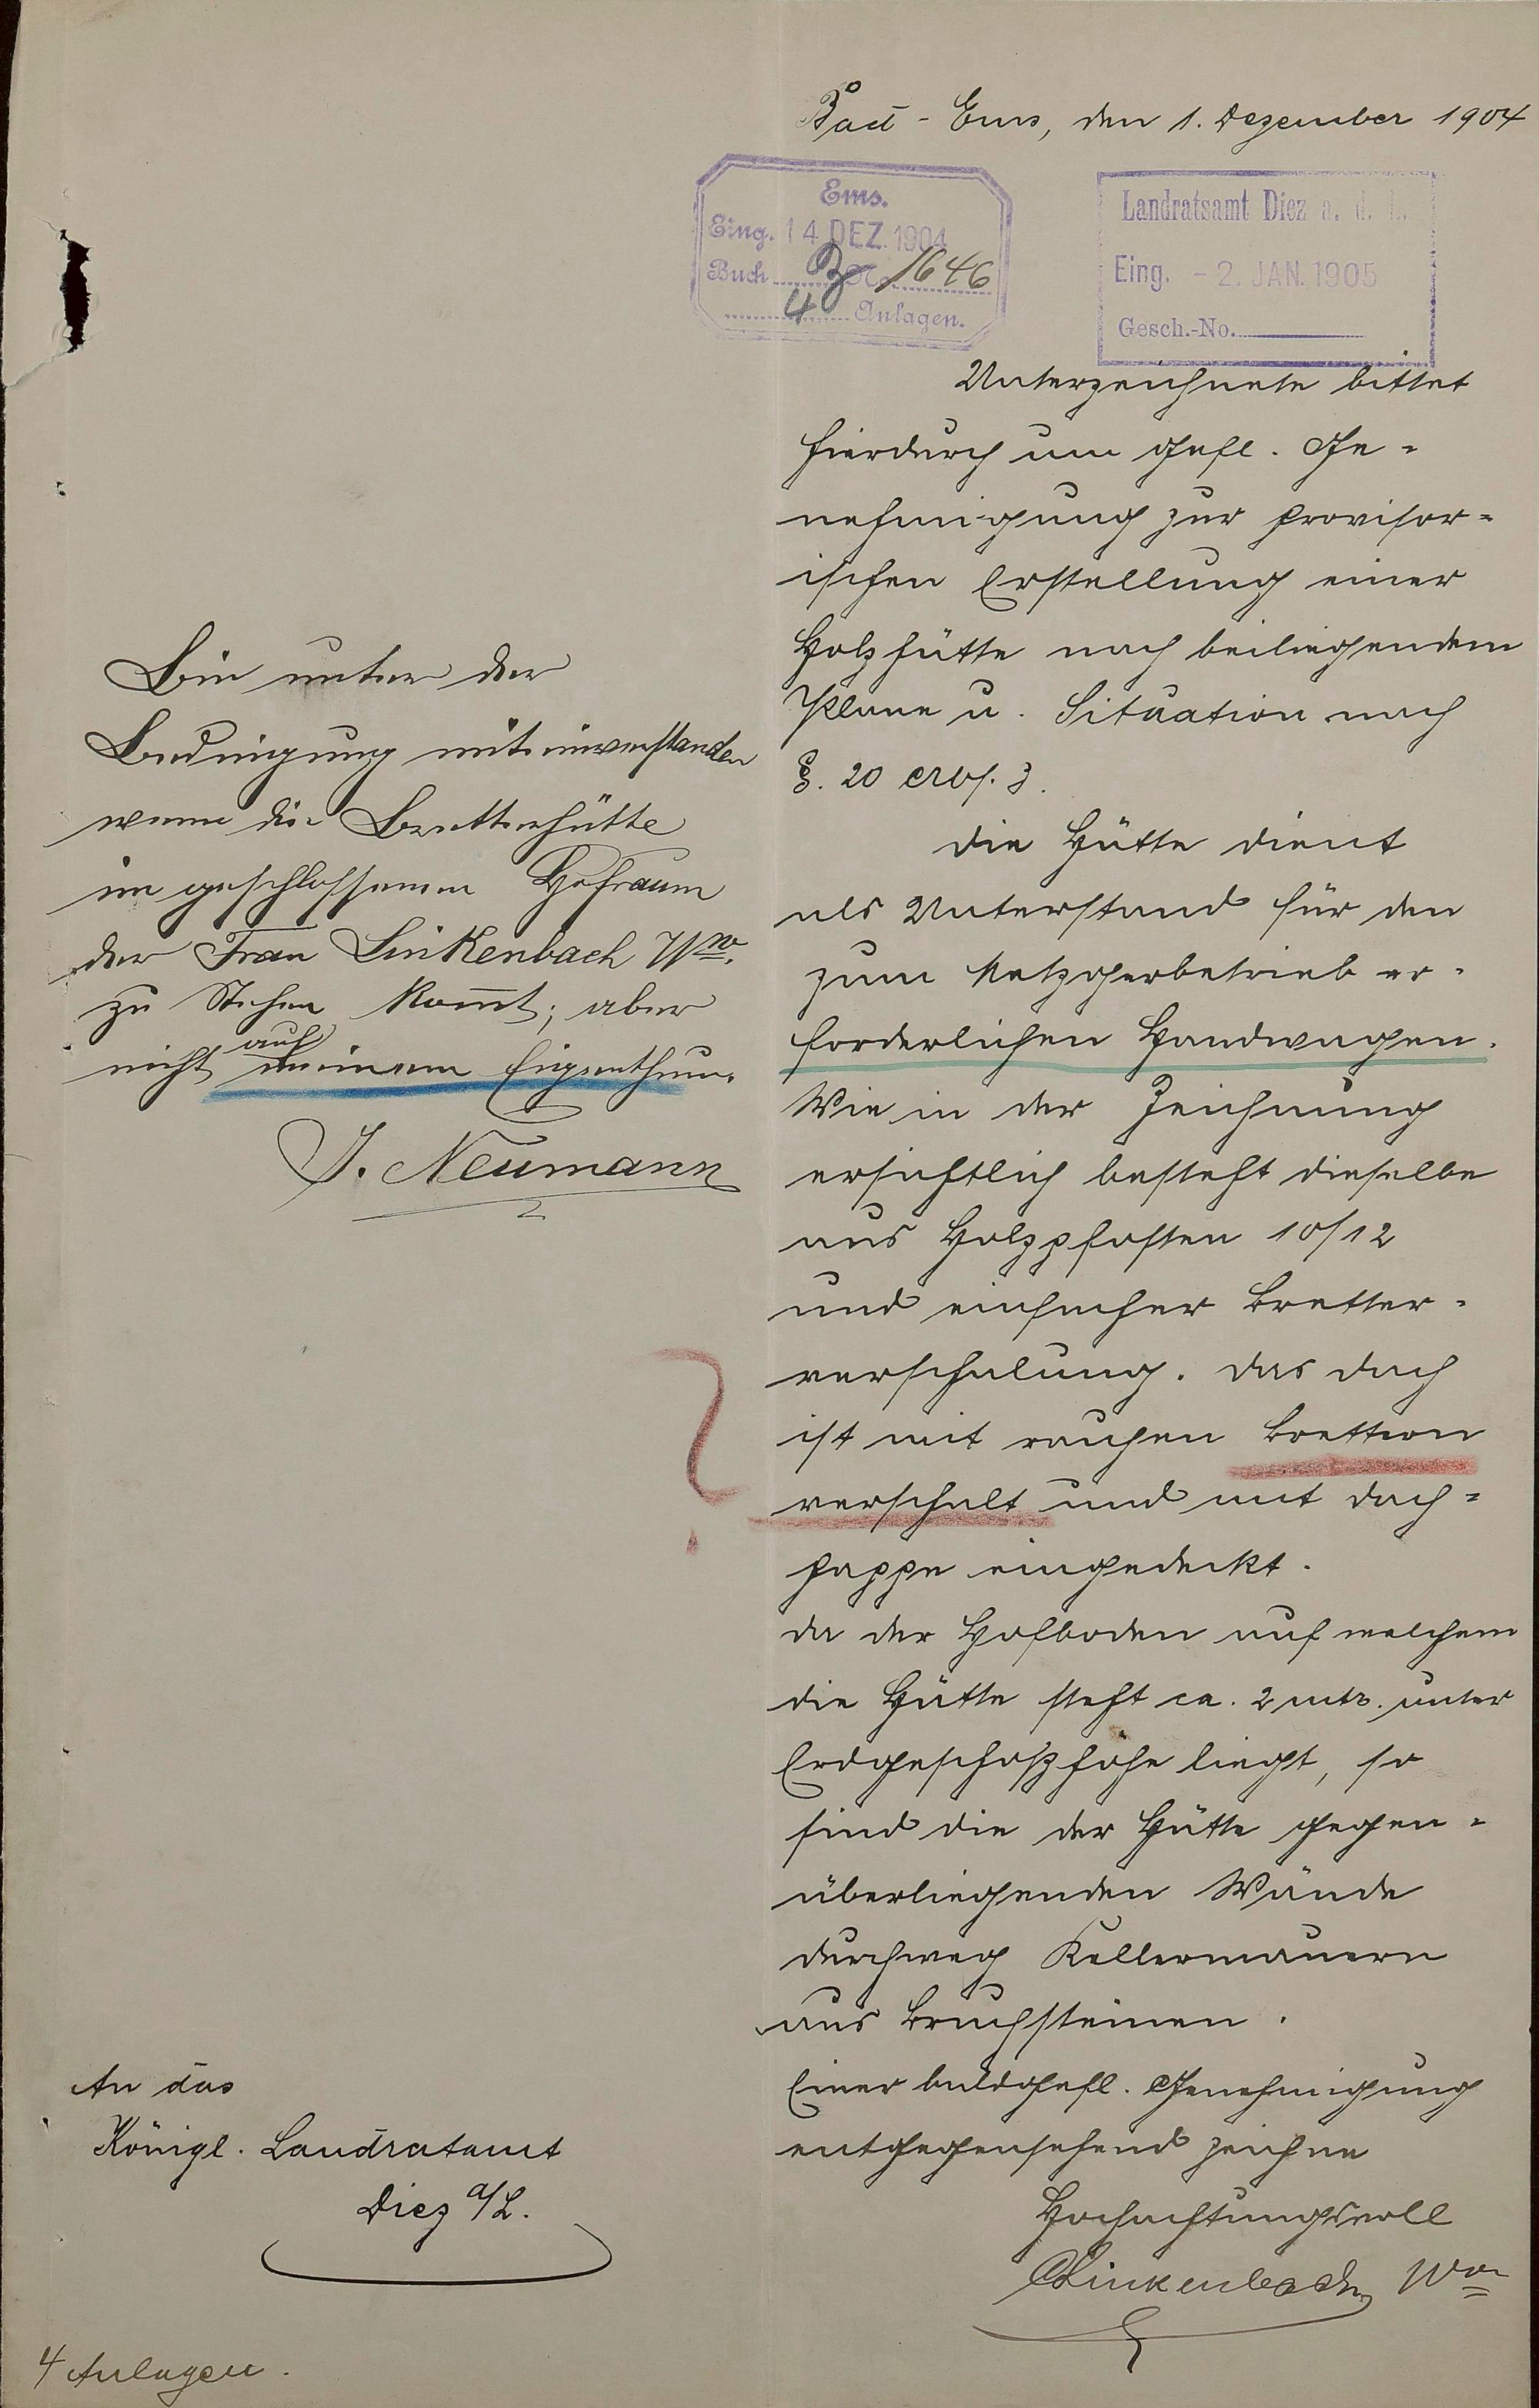 Bad-Ems, den 1. Dezember 1904
Ems.
Eing. 14 DEZ. 1904
Buch 1646
4 Anlagen.
Landratsamt Diez a. d. L.
Eing. - 2. JAN. 1905
Gesch.-No.
Unterzeichnete bittet
hierdurch um gefl. Ge-
nehmigung zur provisor-
ischen Erstellung einer
Holzhütte nach beiliegendem
Plane u. Situation nach
§. 20 3.
Die Hütte dient
als Unterstand für den
zum Metzgerbetrieb er-
forderlichen Handwagen.
Wie in der Zeichnung
ersichtlich besteht dieselbe
aus Holzpfosten 10/12
und einfacher Bretter-
verschalung. Das Dach
ist mit rauhen Brettern
verschalt und mit Dach-
pappe eingedeckt.
Da der Hofboden auf welchem
die Hütte steht ca. 2 mtr. unter
Erdgeschoßhöhe liegt, so
sind die der Hütte gegen-
überliegenden Wände
durchweg Kellermauern
aus Bruchsteinen.
Einer baldgefl. Genehmigung
entgegensehend zeichne
Hochachtungsvoll
C Linkenbach Ww
Bin unter der
Bedingung miteinverstanden
wenn die Bretterhütte
im geschlossenen Hofraum
der Frau Linkenbach Ww.
zu Stehen kom̅t; aber
nicht auf meinem Eigenthum.
J. Neumann
?
An das
Königl. Landratamt
Diez a/L.
4 Anlagen.